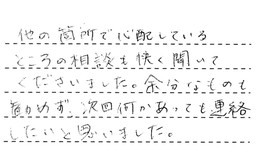 他の箇所で心配している
ところの相談も快く聞いて
くださいました。余分なものも
勧めず、次回何かあっても連絡
したいと思いました。